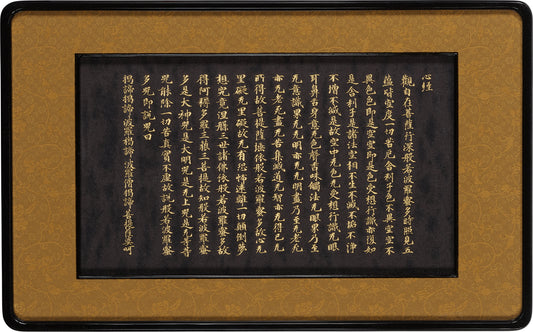 心經
觀自在菩薩行深般若波羅蜜多時照見五
蘊皆空度一切苦厄舍利子色不異空空不
異色色即是空空即是色受想行識亦復如
是舍利子是諸法空相不生不滅不垢不淨
不增不減是故空中无色无受想行識无眼
耳鼻舌身意无色聲香味觸法无眼界乃至
无意識界无无明亦无无明盡乃至无老死
亦无老死盡无苦集滅道无智亦无得已无
所得故菩提薩埵依般若波羅蜜多故心无
罣礙无罣礙故无有恐怖遠離一切顛倒夢
想究竟涅槃三世諸佛依般若波羅蜜多故
得阿耨多羅三藐三菩提故知般若波羅蜜
多是大神呪是大明呪是无上呪是无等等
呪能除一切苦真實不虛故說般若波羅蜜
多呪即說呪曰
揭諦揭諦 波羅揭諦 波羅僧揭諦 菩提薩婆訶